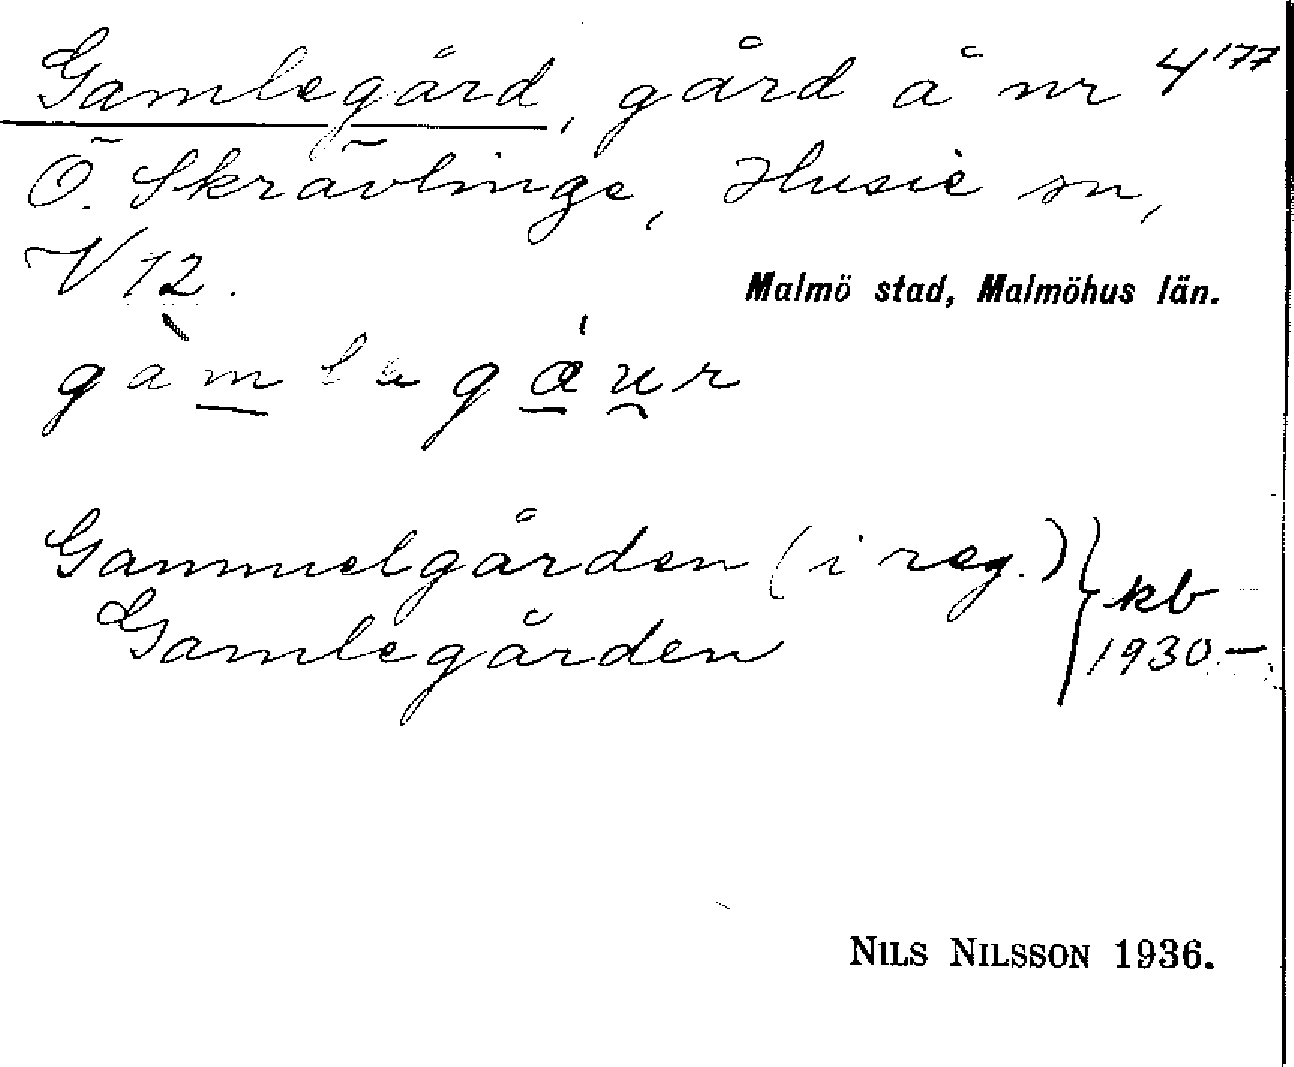 Gamlegård, gård å nr 4¹⁷⁷
Ö. Skrävlinge, Husie sn,
V 12.
Malmö stad, Malmöhus län.
gàmlagǽur
Gammelgården (i reg.)
Gamlegården
} kb
1930.–
NILS NILSSON 1936.